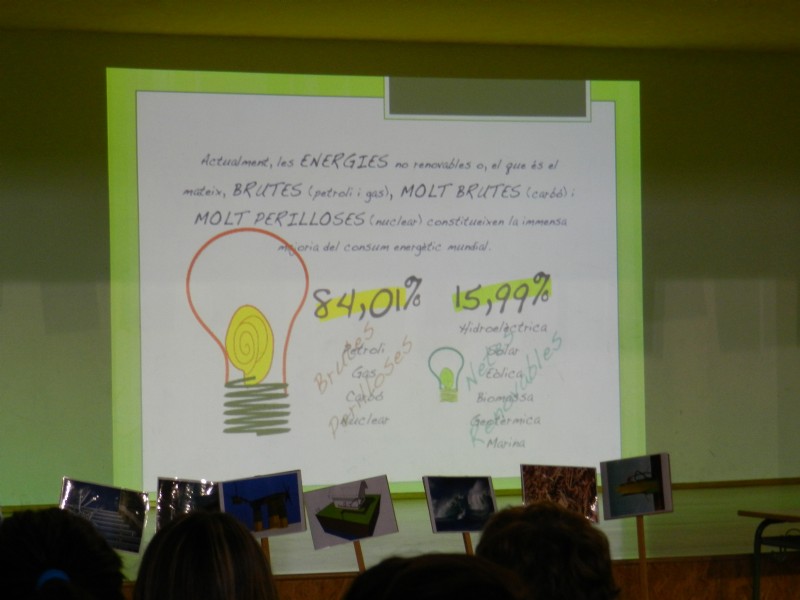 Actualment, les ENERGIES no renovables o, el que és el
mateix, BRUTES (petroli i gas), MOLT BRUTES (carbó) i
MOLT PERILLOSES (nuclear) constitueixen la immensa
majoria del consum energètic mundial.
84,01% 15,99%
Hidroelèctrica
Petroli Solar
Gas Eòlica
Carbó Biomassa
Nuclear Geotèrmica
Marina
Brutes
perilloses
Netes
renovables